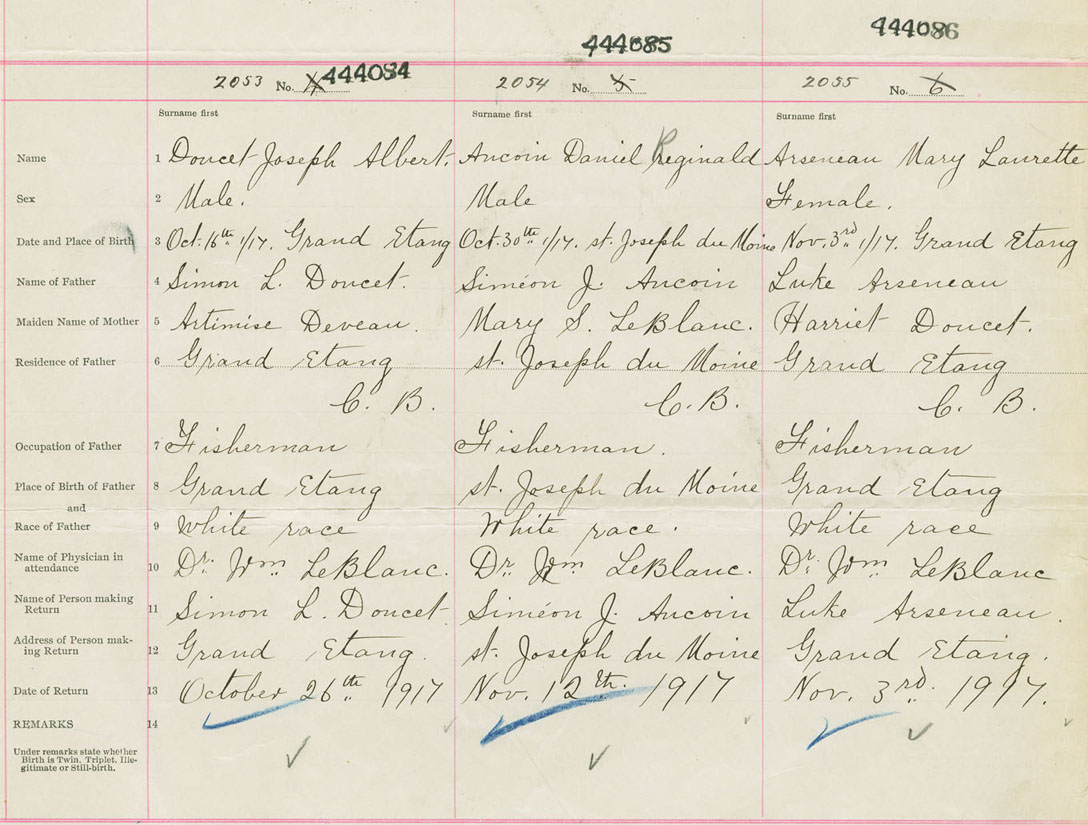 444086
444085
2053 No. 4 444084 2054 No. 5 2055 No. 6
Surname first Surname first Surname first
Name 1 Doucet Joseph Albert. Aucoin Daniel Reginald Arseneau Mary Laurette
Sex 2 Male. Male Female.
Date and Place of Birth 3 Oct. 16th 1/17. Grand Etang Oct. 30th 1/17. st. Joseph du Moine Nov. 3rd 1/17. Grand Etang
Name of Father 4 Simon L. Doucet. Siméon J. Aucoin Luke Arseneau
Maiden Name of Mother 5 Artimise Deveau. Mary S. LeBlanc. Harriet Doucet.
Residence of Father 6 Grand Etang st. Joseph du Moine Grand Etang
C. B. C. B. C. B.
Occupation of Father 7 Fisherman Fisherman. Fisherman
Place of Birth of Father 8 Grand Etang st. Joseph du Moine Grand Etang
and
Race of Father 9 White race White race. White race
Name of Physician in
attendance 10 Dr. Wm LeBlanc. Dr. Wm LeBlanc. Dr. Wm LeBlanc
Name of Person making
Return 11 Simon L. Doucet Siméon J. Aucoin Luke Arseneau.
Address of Person mak-
ing Return 12 Grand Etang. st. Joseph du Moine Grand Etang.
Date of Return 13 October 26th 1917 Nov. 12th. 1917 Nov. 3rd. 1917.
REMARKS 14
Under remarks state whether
Birth is Twin, Triplet, Ille-
gitimate or Still-birth.